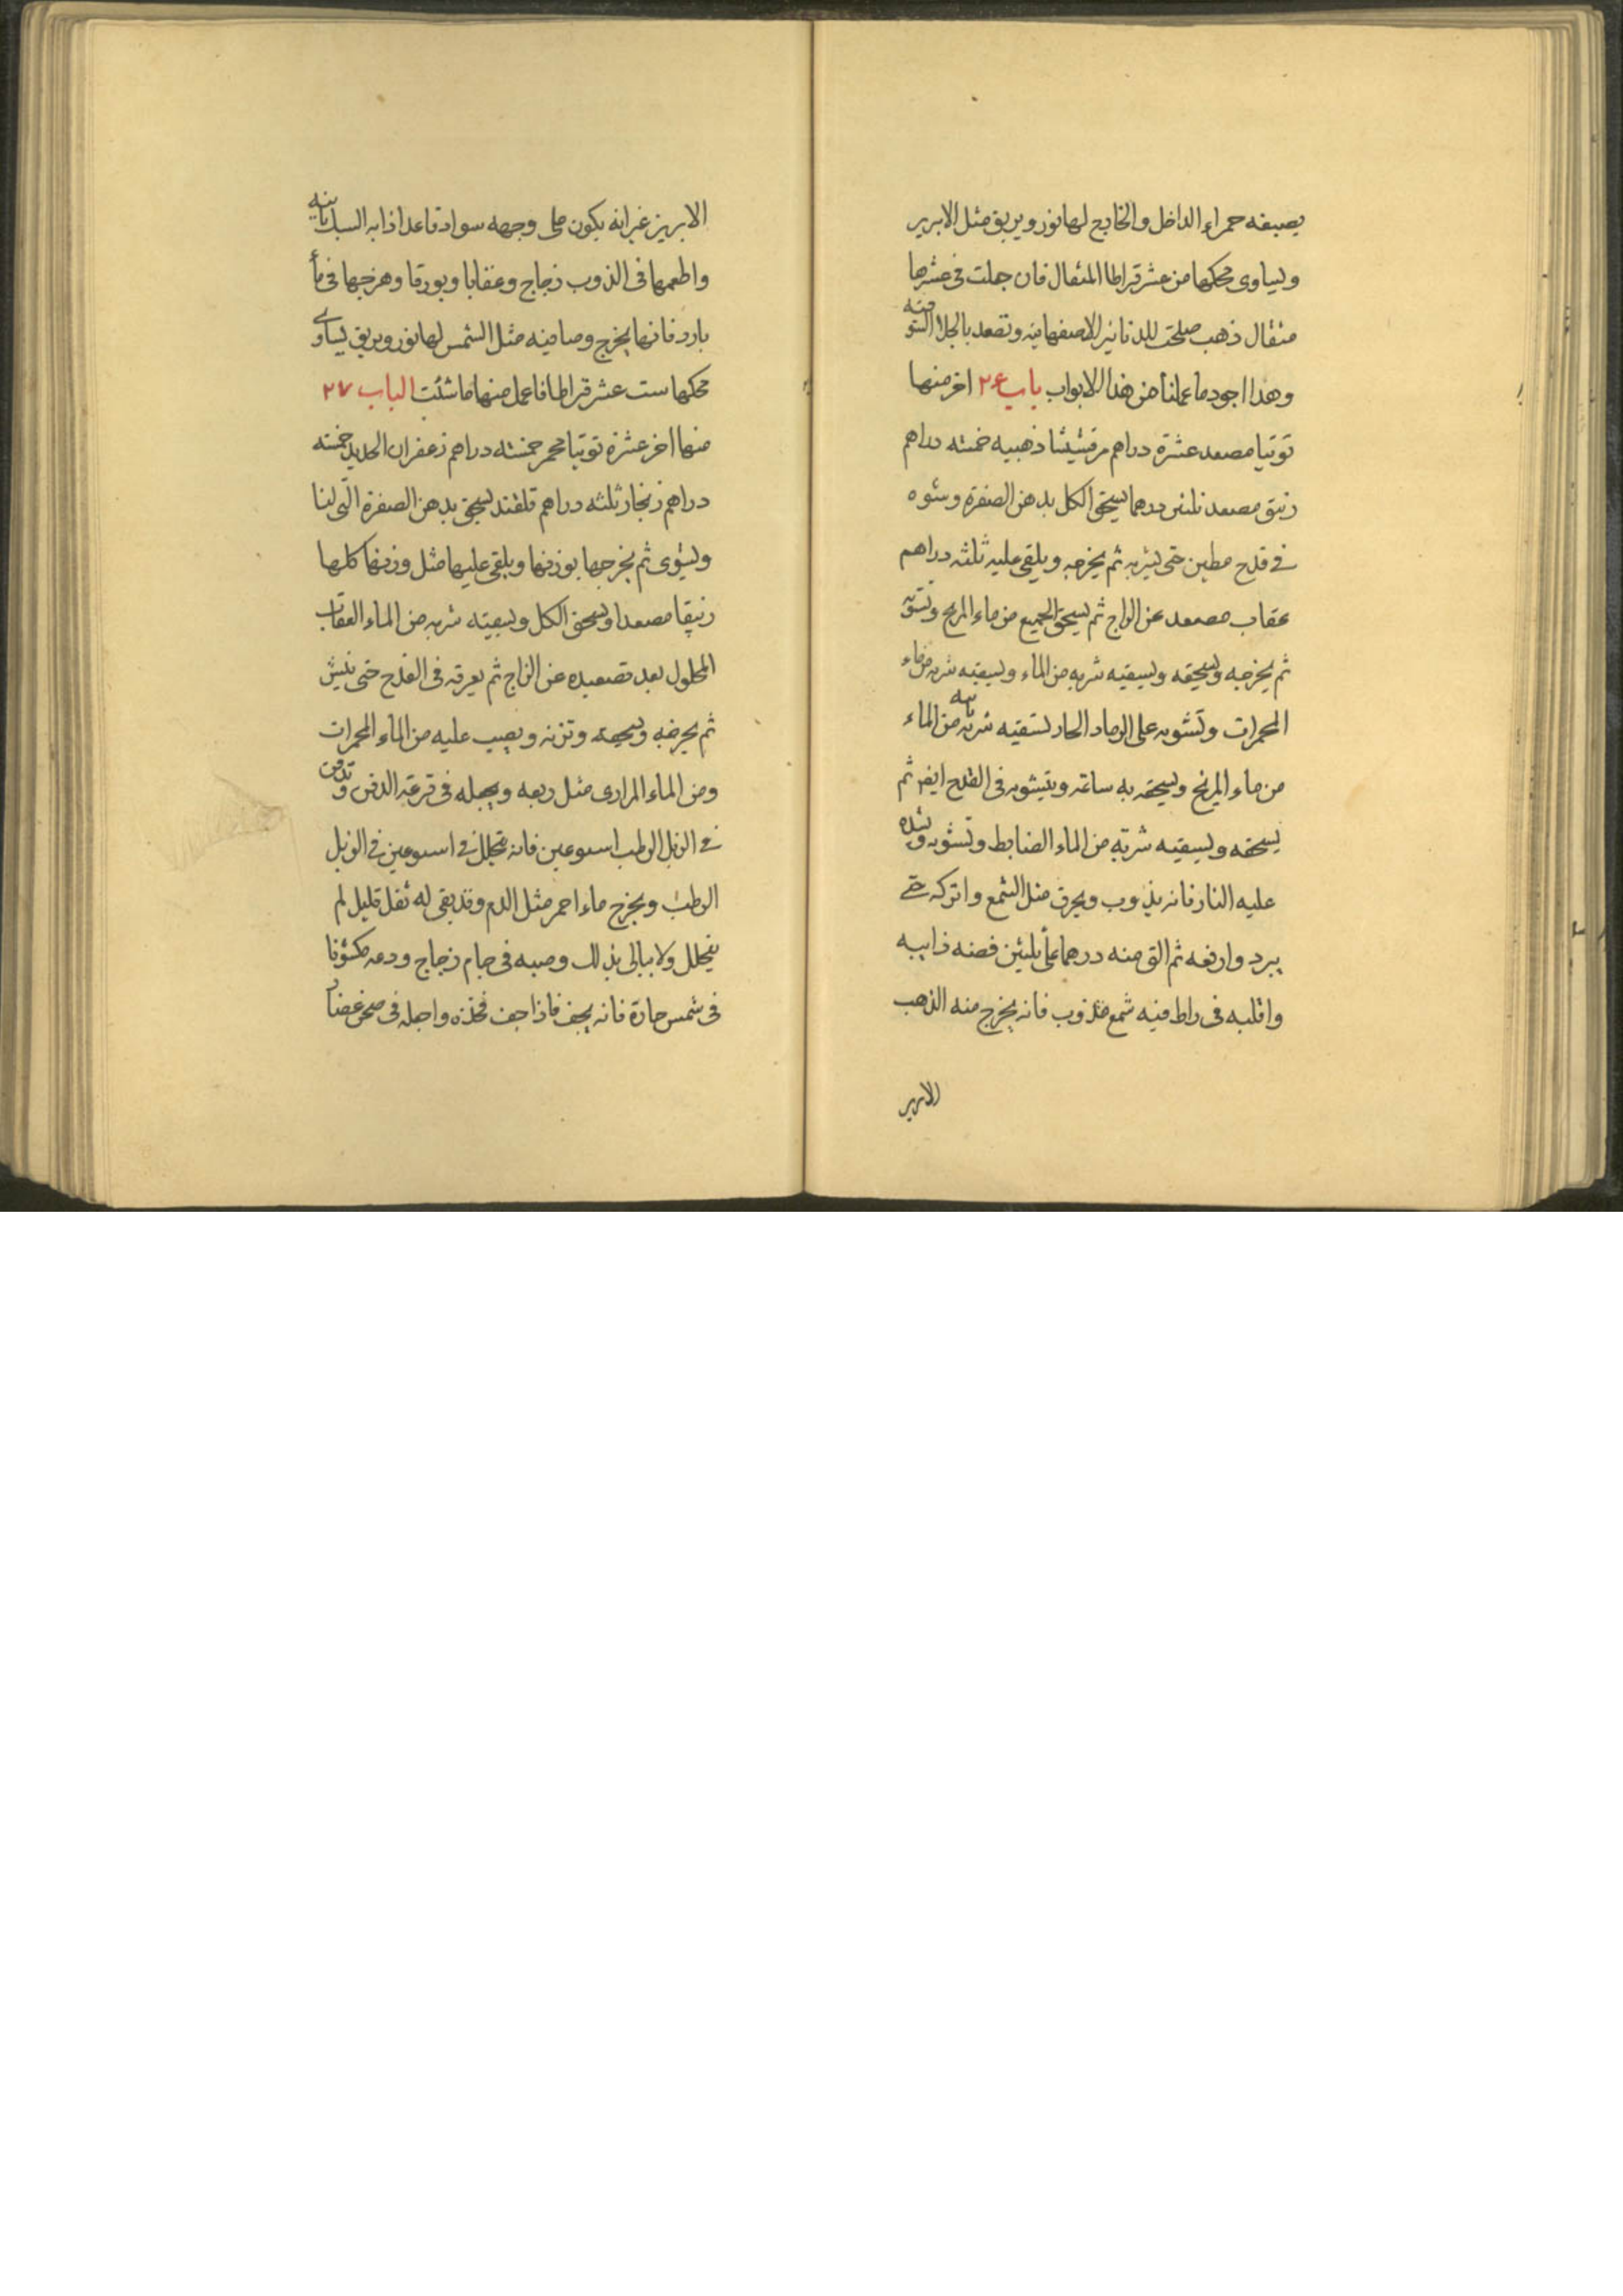 يصبغه حمراء الداخل والخارج لها نور وبريق مثل الابريز
وليساوى محكها من عشر قراطا المثقال فان جعلت فى عشرها
مثقال ذهب صلحت للدنانير الاصفهانيه وتصعد بالجلا
وهذا اجود ما عملناه من هذا الابواب باب ٢٤ اخر منها
توتيا مصعد عشرة دراهم مرقشيشا ذهبيه خمسه دراهم
زيبق مصعد ثلثين درهما يسحق الكل بدهن الصفرة وشوه
فى قدح مطين حتى يشربه ثم يخرجه ويلقى عليه ثلثه دراهم
عقاب مصعد عن الزاج ثم يسحق الجميع من ماء المريخ وتشويه
ثم يخرجه ويسحقه ويسقيه شربه من الماء ويسقيه شربه من ماء
المحمرات وتشويه على الرماد الحار تسقيه شربه ثانيه من الماء
من ماء المريخ ويسحقه به ساعه ويشويه فى القدح ايضا ثم
يسحقه ويسقيه شربة من الماء الضابط وتشويه ويشده
عليه النار فانه يذوب ويجرى مثل الشمع واتركه حتى
يبرد وارفعه ثم الق منه درهما على ثلثين فضه ذايبه
واقلبه فى راط فيه شمع مذوب فانه يخرج منه الذهب
الابريز
الابريز غير انه يكون على وجهه سواد فاعد اذابه السبك ثانيه
واطعمها فى الذوب زجاج وعقابا وبورقا وهرجها فى ماء
بارد فانها يخرج وصافيه مثل الشمس لها نور وبريق يساوى
محكها ست عشر قراطا فاعمل منها ما شئت الباب ٢٧
منها اخر عشرة توتيا محمر خمسه دراهم زعفران الحديد خمسه
دراهم زنجار ثلثه دراهم قلقند يسحق بدهن الصفرة التى لنا
ويشوى ثم يخرجها بوزنها ويلقى عليها مثل وزنها كلها
زيبقا مصعدا ويسحق الكل ويسقيه شربه من الماء العقاب
المحلول بعد تصعيده عن الزاج ثم يعرقه فى القدح حتى ينش
ثم يخرجه ويسحقه وتزنه ويصب عليه من الماء المحمرات
ومن الماء المرارى مثل ربعه ويجعله فى قرعة الدفن وتدفن
فى الزبل الرطب اسبوعين فانه يتحلل فى اسبوعين فى الزبل
الرطب ويخرج ماء احمر مثل الدم وقد يبقى له ثفل قليل لم
يتحلل ولا يبالى بذلك وصبه فى جام زجاج ودعه مكشوفا
فى شمس حارة فانه يجف فاذا جف فخذه واجعله فى صحن غضار